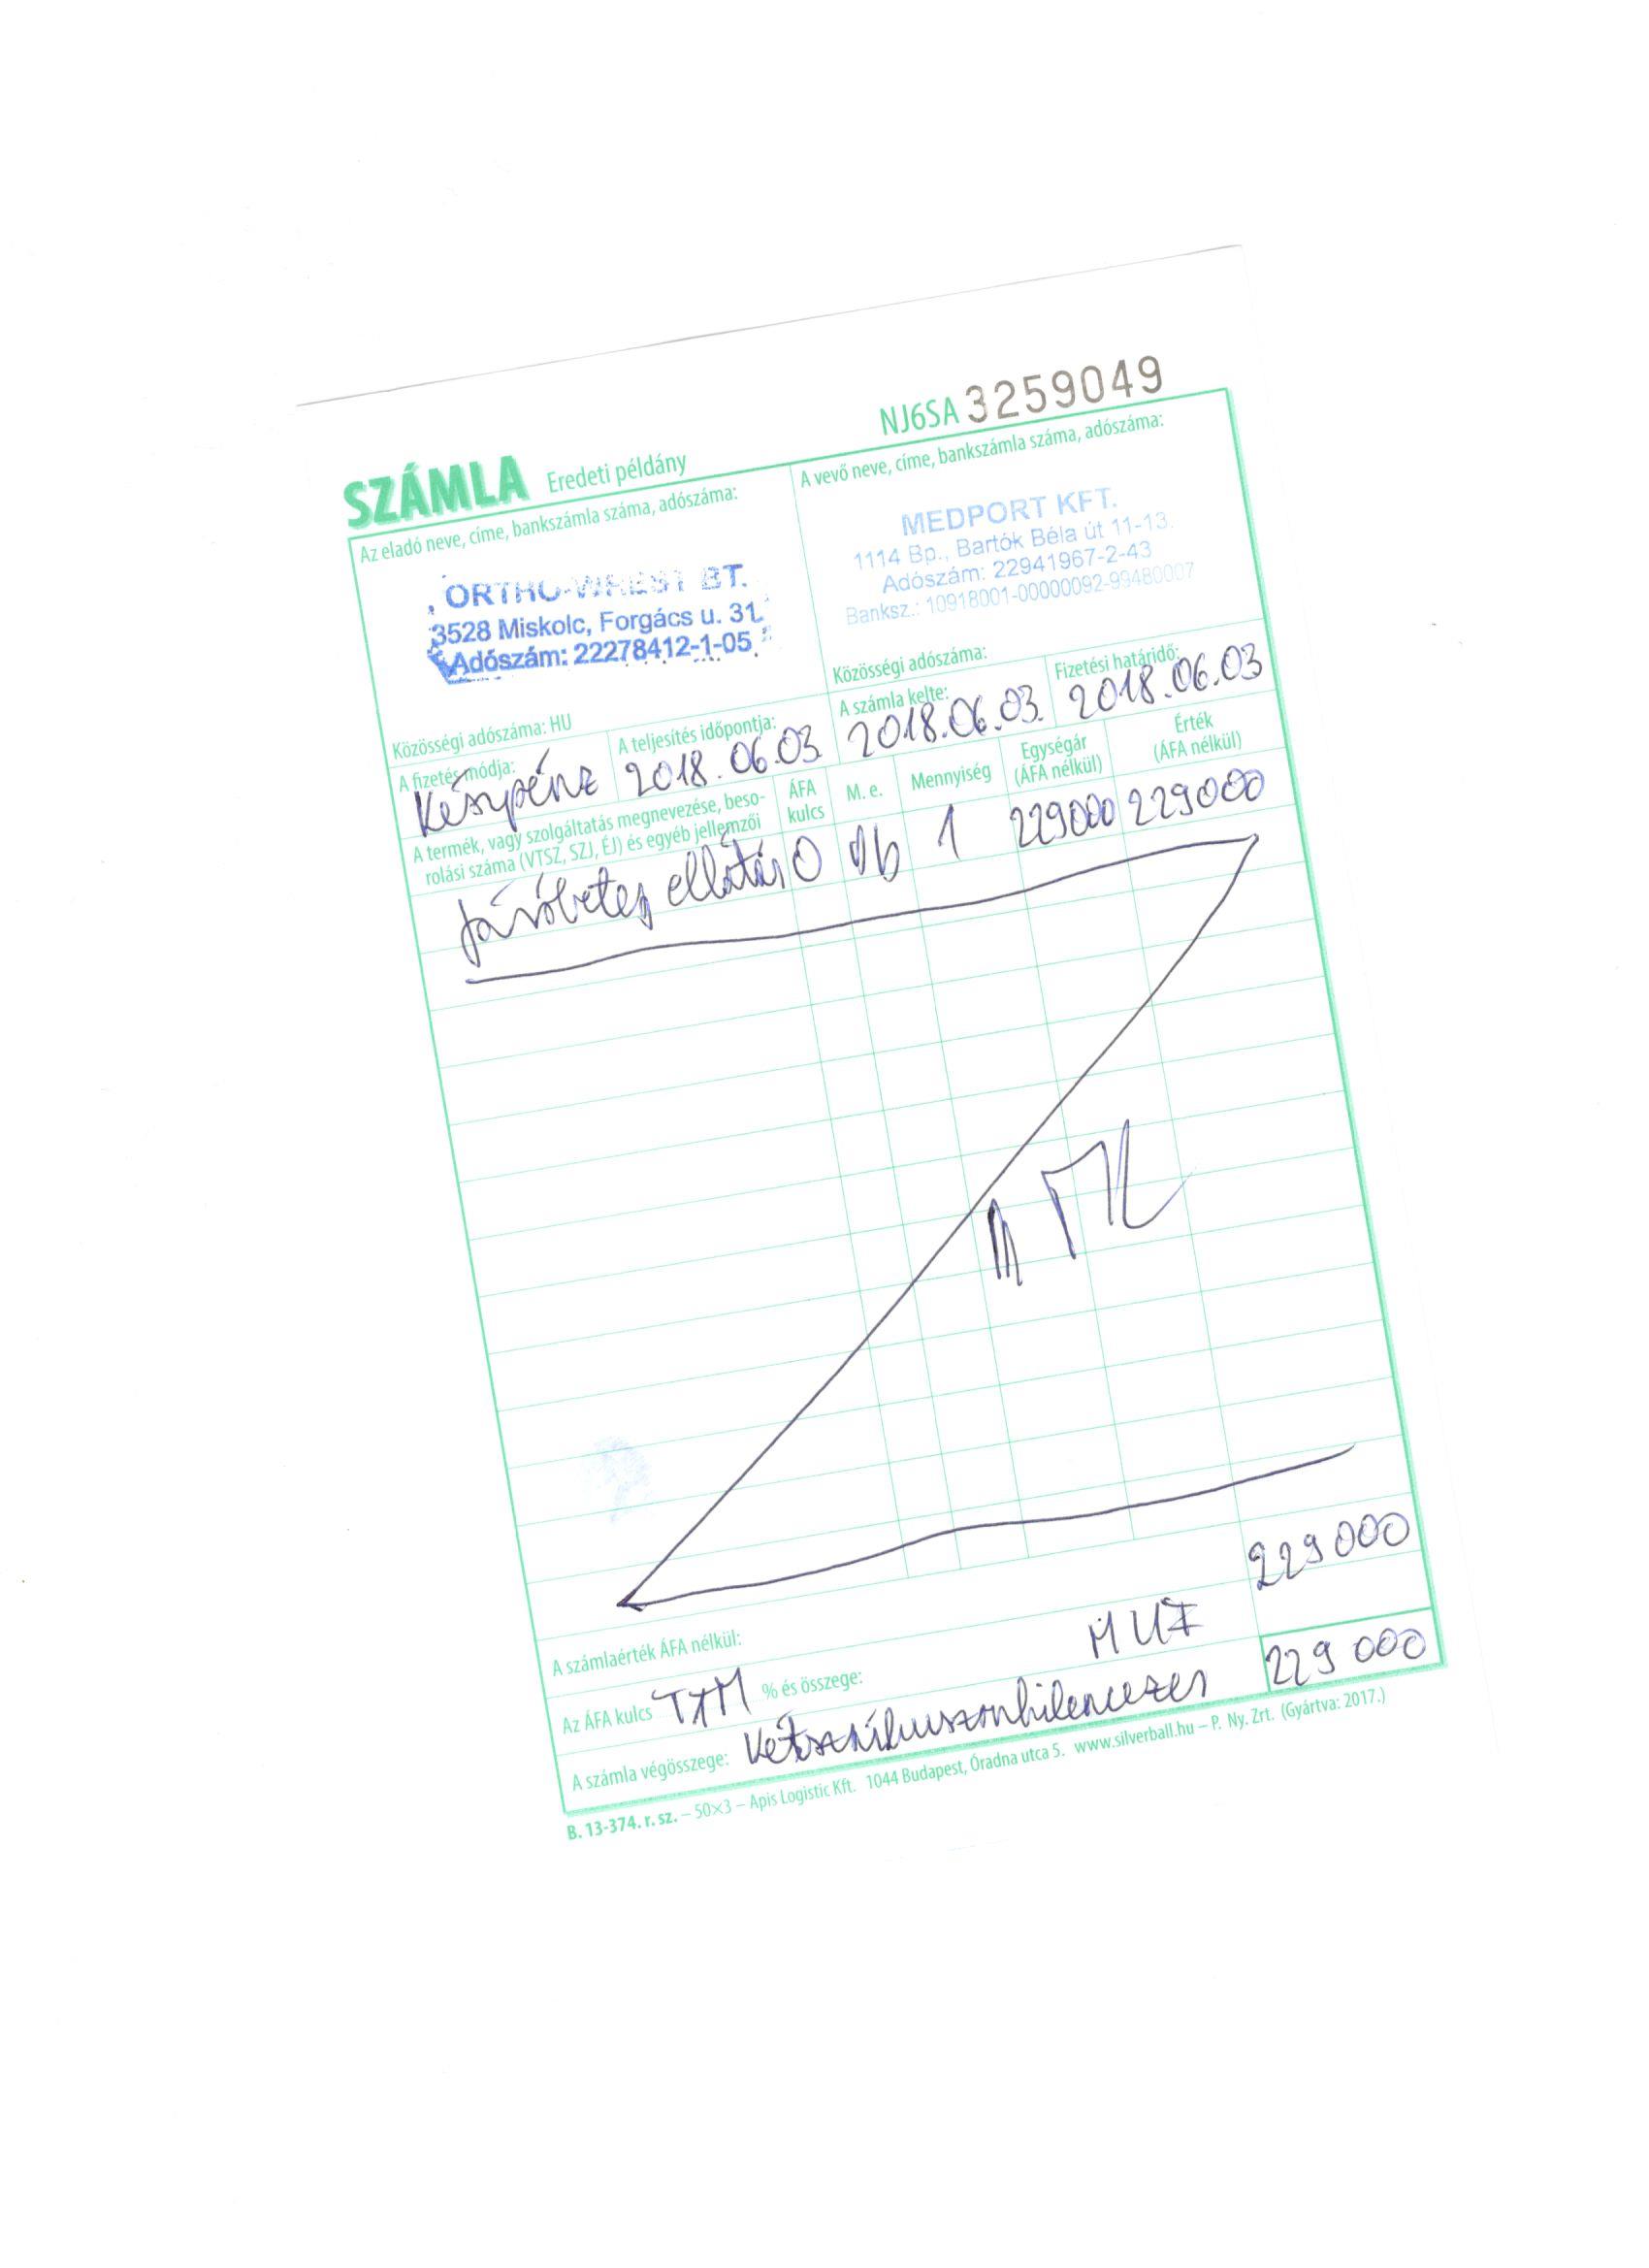 NJ6SA 3259049
SZÁMLA Eredeti példány
Az eladó neve, címe, bankszámla száma, adószáma:
ORTHO-WREST BT.
3528 Miskolc, Forgács u. 31.
Adószám: 22278412-1-05
Közösségi adószáma: HU
A vevő neve, címe, bankszámla száma, adószáma:
MEDPORT KFT.
1114 Bp., Bartók Béla út 11-13.
Adószám: 22941967-2-43
Banksz.: 10918001-00000092-99480007
Közösségi adószáma:
A fizetés módja: A teljesítés időpontja: A számla kelte: Fizetési határidő:
Készpénz 2018.06.03 2018.06.03. 2018.06.03
A termék, vagy szolgáltatás megnevezése, beso-
rolási száma (VTSZ, SZJ, ÉJ) és egyéb jellemzői
ÁFA kulcs
M. e.
Mennyiség
Egységár (ÁFA nélkül)
Érték (ÁFA nélkül)
Járóbeteg ellátás 0 db 1 229000 229000
A számlaérték ÁFA nélkül: 229 000
Az ÁFA kulcs % és összege:
A számla végösszege: 229 000
B. 13-374. r. sz. – 50×3 – Apis Logistic Kft. 1044 Budapest, Óradna utca 5. www.silverball.hu – P. Ny. Zrt. (Gyártva: 2017.)